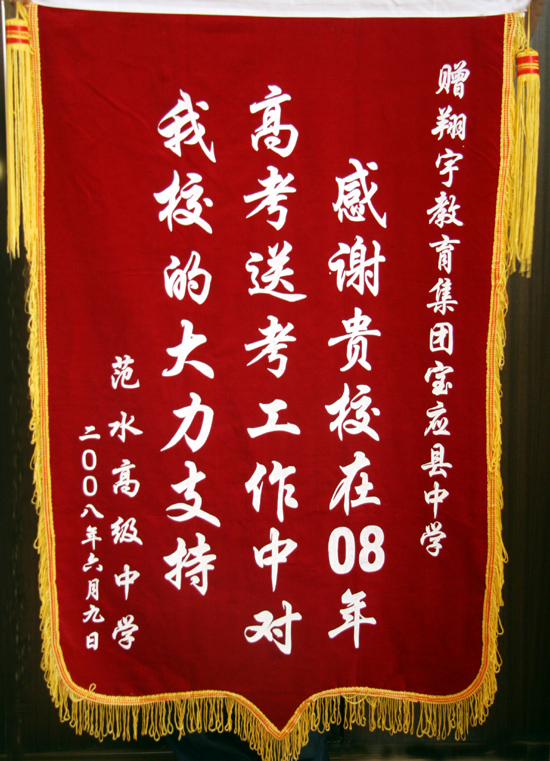 赠翔宇教育集团宝应县中学
感谢贵校在08年
高考送考工作中对
我校的大力支持
范水高级中学
二〇〇八年六月九日